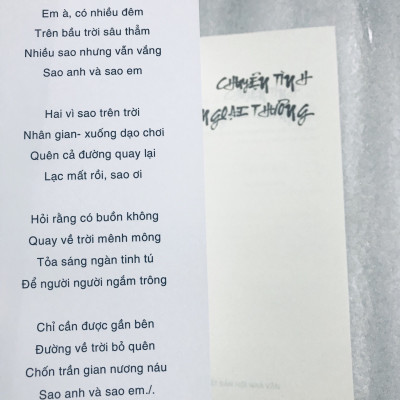 Em à, có nhiều đêm
Trên bầu trời sâu thẳm
Nhiều sao nhưng vẫn vắng
Sao anh và sao em
Hai vì sao trên trời
Nhân gian- xuống dạo chơi
Quên cả đường quay lại
Lạc mất rồi, sao ơi
Hỏi rằng có buồn không
Quay về trời mênh mông
Tỏa sáng ngàn tinh tú
Để người người ngắm trông
Chỉ cần được gần bên
Đường về trời bỏ quên
Chốn trần gian nương náu
Sao anh và sao em./.
CHUYỆN TÌNH
NGOẠI THƯƠNG